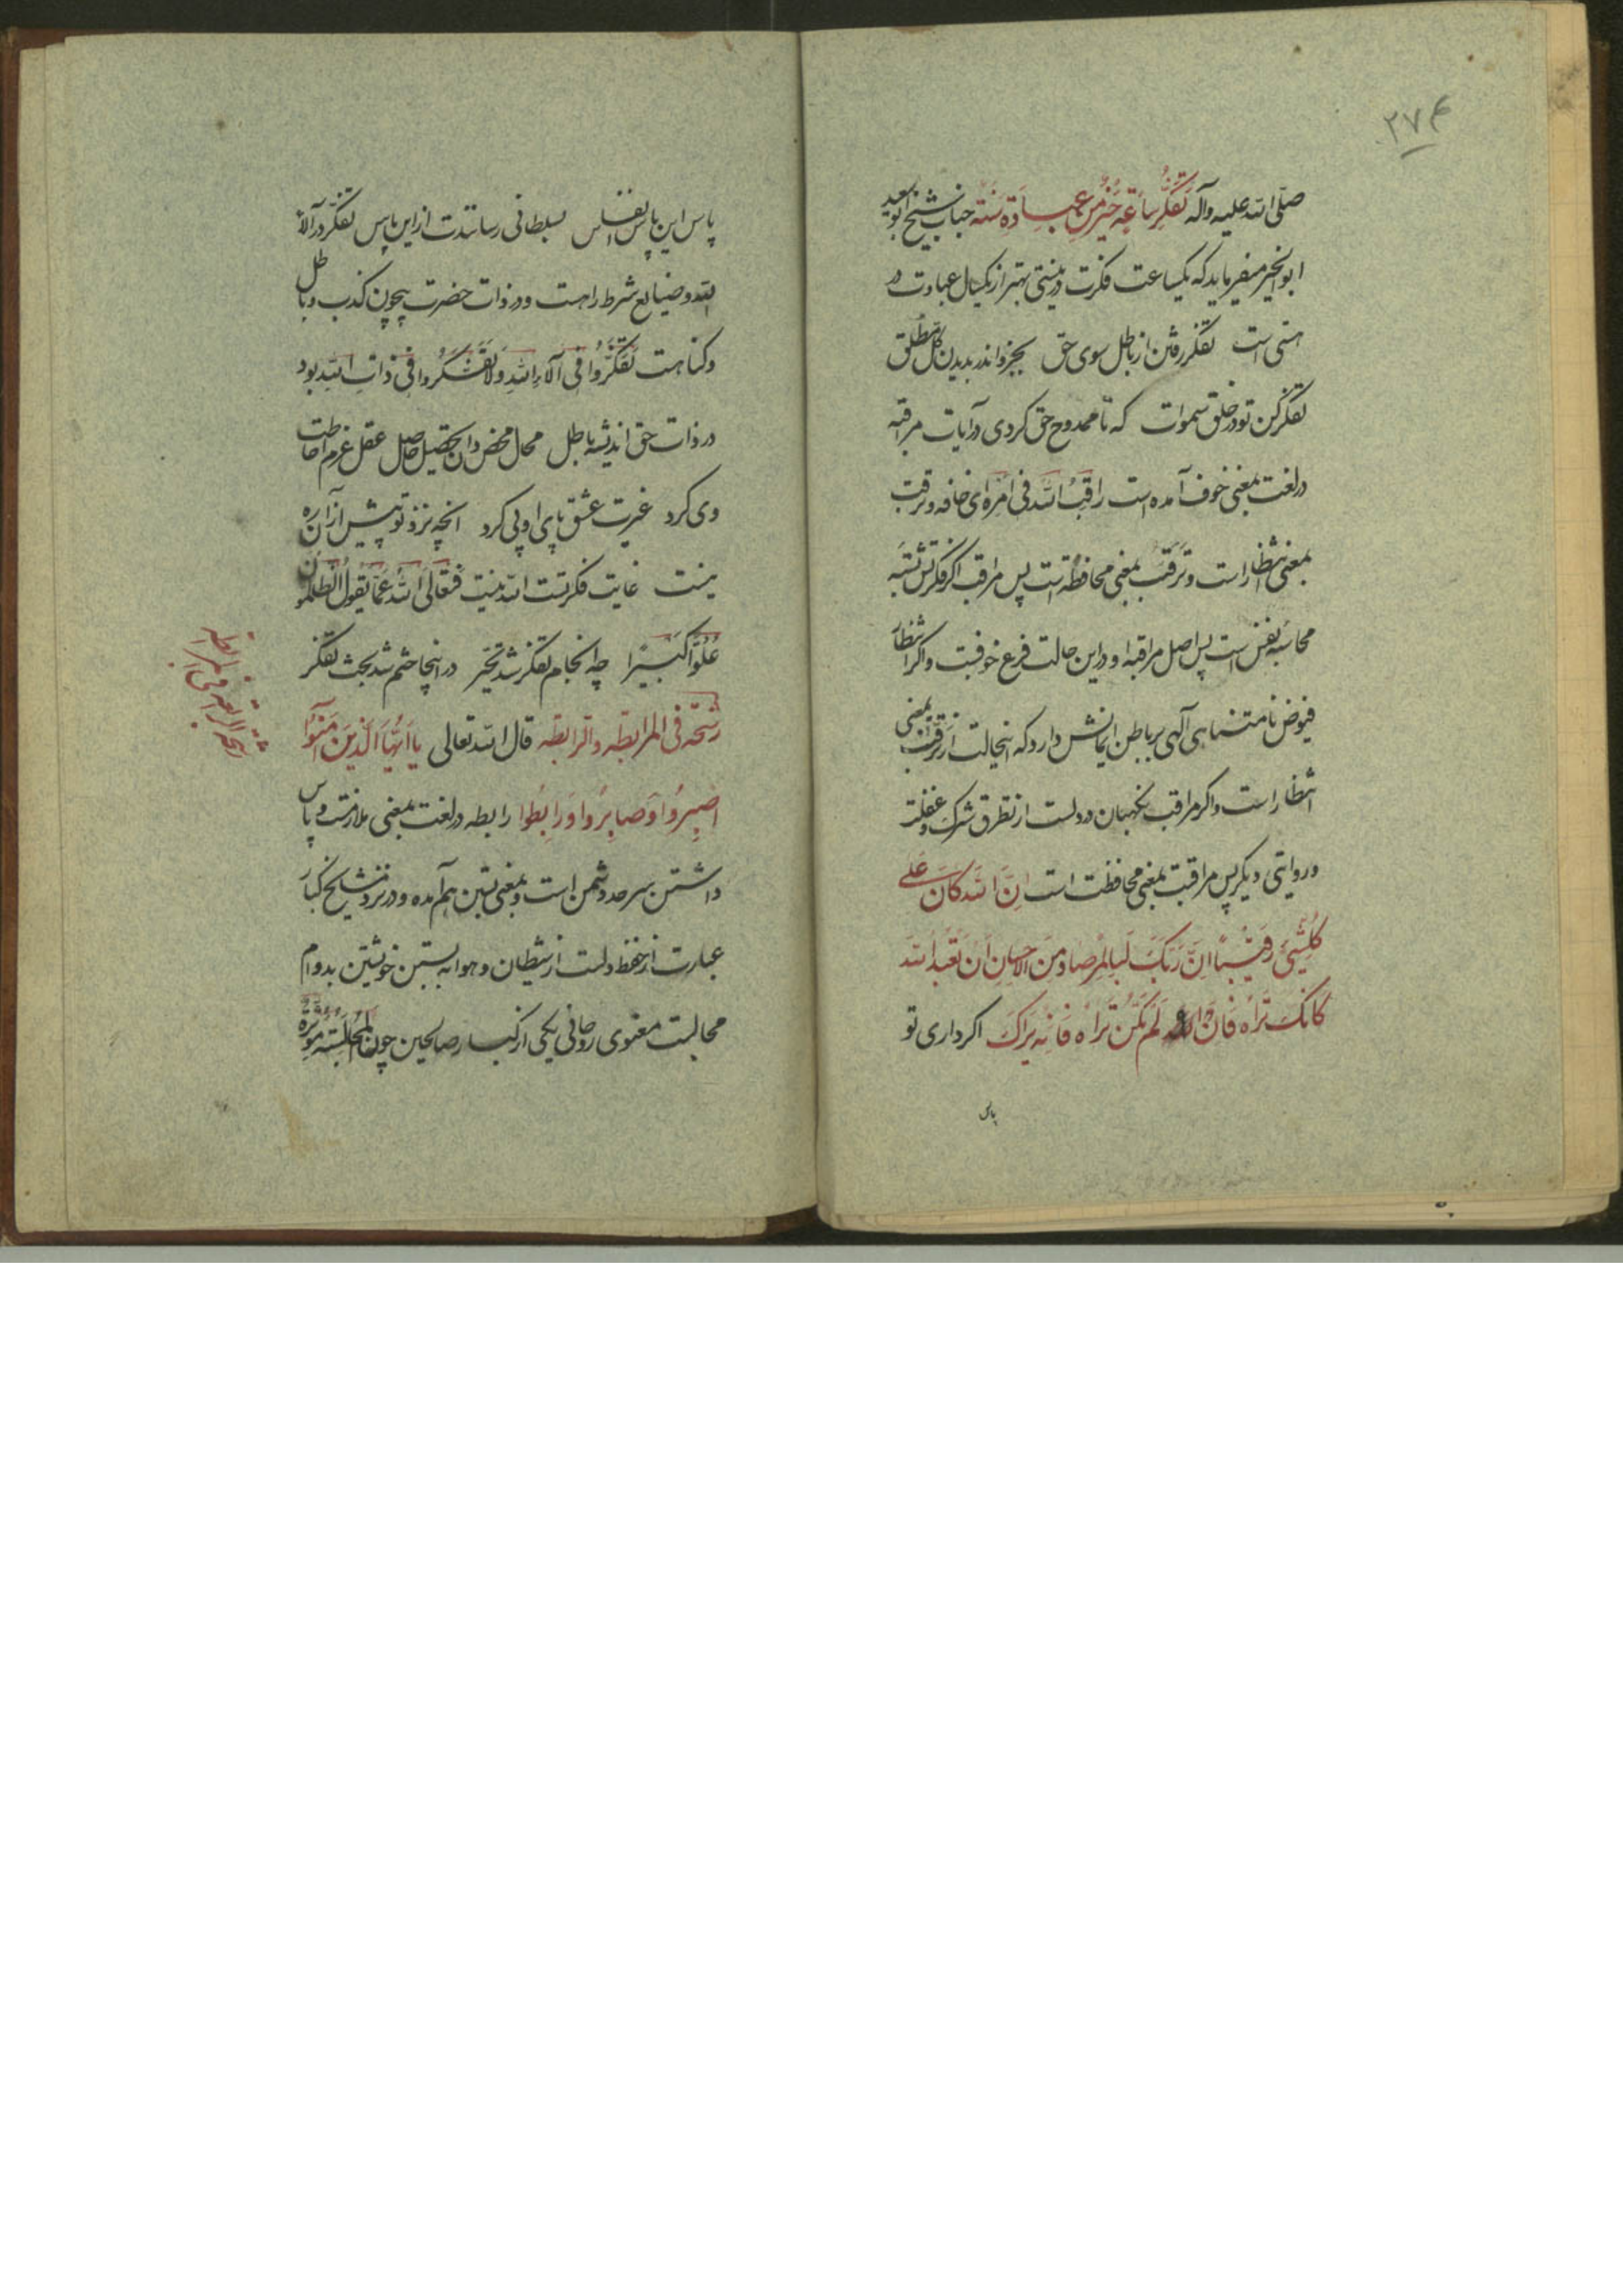 ۲۷۴
صلی الله علیه وآله تَفَکُّرُ ساعَةٍ خَیْرٌ مِن عِبادَة سَنَة جناب شیخ ابوسعید
ابوالخیر میفرماید که یکساعت فکرت در نیستی بهتر از یکسال عبادت در
هستی است تفکر رفتن از باطل سوی حق بجزو اندر بدیدن کل مطلق
تفکر کن تو در خلق سموات که تا ممدوح حق کردی در آیات مراقبه
در لغت بمعنی خوف آمده است راقَبَ الله فی امره ای خافه و ترقب
بمعنی انتظار است و ترقب بمعنی محافظة است پس مراقب اکر فکرتش تنبه
محاسبه نفس است پس اصل مراقبه او در این حالت فرع خوفست و اکر انتظار
فیوض نامتناهی آلهی بر باطن ایمانش دارد که اینحالت از ترقب بمعنی
انتظار است و اکر مراقب نکهبان در دلست از تطرق شرک و غفلت
و روایتی دیکر پس مراقبت بمعنی محافظت است اِنَّ اللهَ کانَ عَلی
کُلِّشَیْئٍ رَقیباً اِنَّ رَبَّکَ لَبِالمِرصاد و مِنَ الاحسانِ اَن تَعبُدَ الله
کَانَّکَ تَراه فَان لَم تَکُنْ تَراه فَانَّه یَراکَ اکر داری تو
پاس
پاس این پاس انفاس بسلطانی رسانندت از این پاس تفکر در آلاء
الله و صنایع شرط راهست و در ذات حضرت بیچون کذب و باطل
و کناهست تَفَکَّرُوا فی آلاءِ اللهِ وَلا تَتَفَکَّروا فی ذاتِ اللهِ بود
در ذات حق اندیشه باطل محال محض دان تحصیل حاصل عقل عزم احاطت
وی کرد غیرت عشق پای او پی کرد انچه نزد تو پیش از آن ره
نیست غایت فکر تست الله نیست فَتَعالَی اللهُ عَمّا یَقُولُ الظّالِمُونَ
عُلُوّاً کَبیراً چه انجام تفکر شد تحیر در اینجا ختم شد بحث تفکر
رشحة فی المرابطه والرابطه قال الله تعالی یا اَیُّهَا الَّذینَ آمَنُوا
اصْبِرُوا وَصابِرُوا وَرابِطُوا رابطه در لغت بمعنی ملازمت و پاس
داشتن سرحد دشمن است و بمعنی بستن هم آمده و در نزد مشایخ کبار
عبارت از حفظ دلست از شیطان و هوا به بستن خویشتن بدوام
مجالست معنوی روحانی یکی از کبار صالحین چون المجالسة مؤثرة